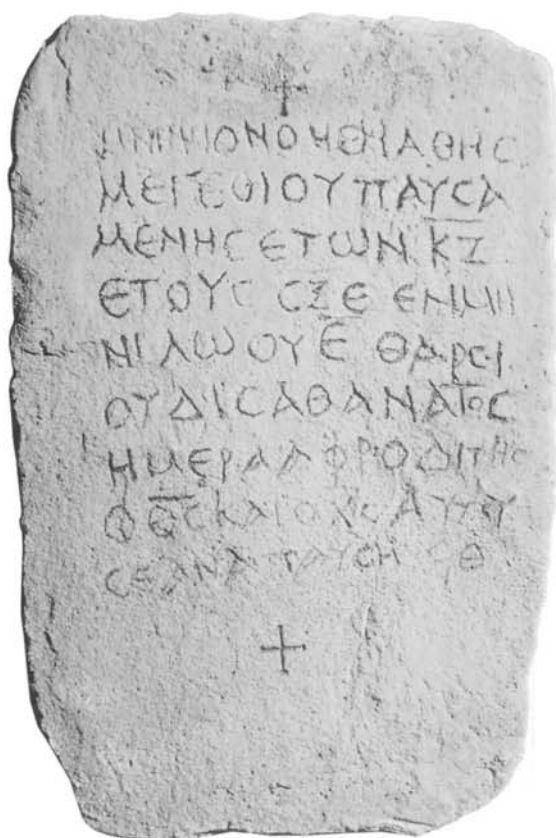 ✝
ΜΝΗΜΙΟΝ
ΜΕΓΕΘΙΟΥ ΠΑΥСΑ
ΜΕΝΗС ΕΤΩΝ ΚΖ
ΕΤΟΥС СΞΕ ΕΝ ΜΗ
ΝΙ ΛΩΟΥ Ε ΘΑΡСΙ
ΟΥΔΙС ΑΘΑΝΑΤΟС
ΗΜΕΡΑ ΑΦΡΟΔΙΤΗС
Ο ΘС ΚΑΙ Ο ΧС ΑΥΤΟΥ
СΕ ΑΝΑΠΑΥСΗ ϘΘ
✝